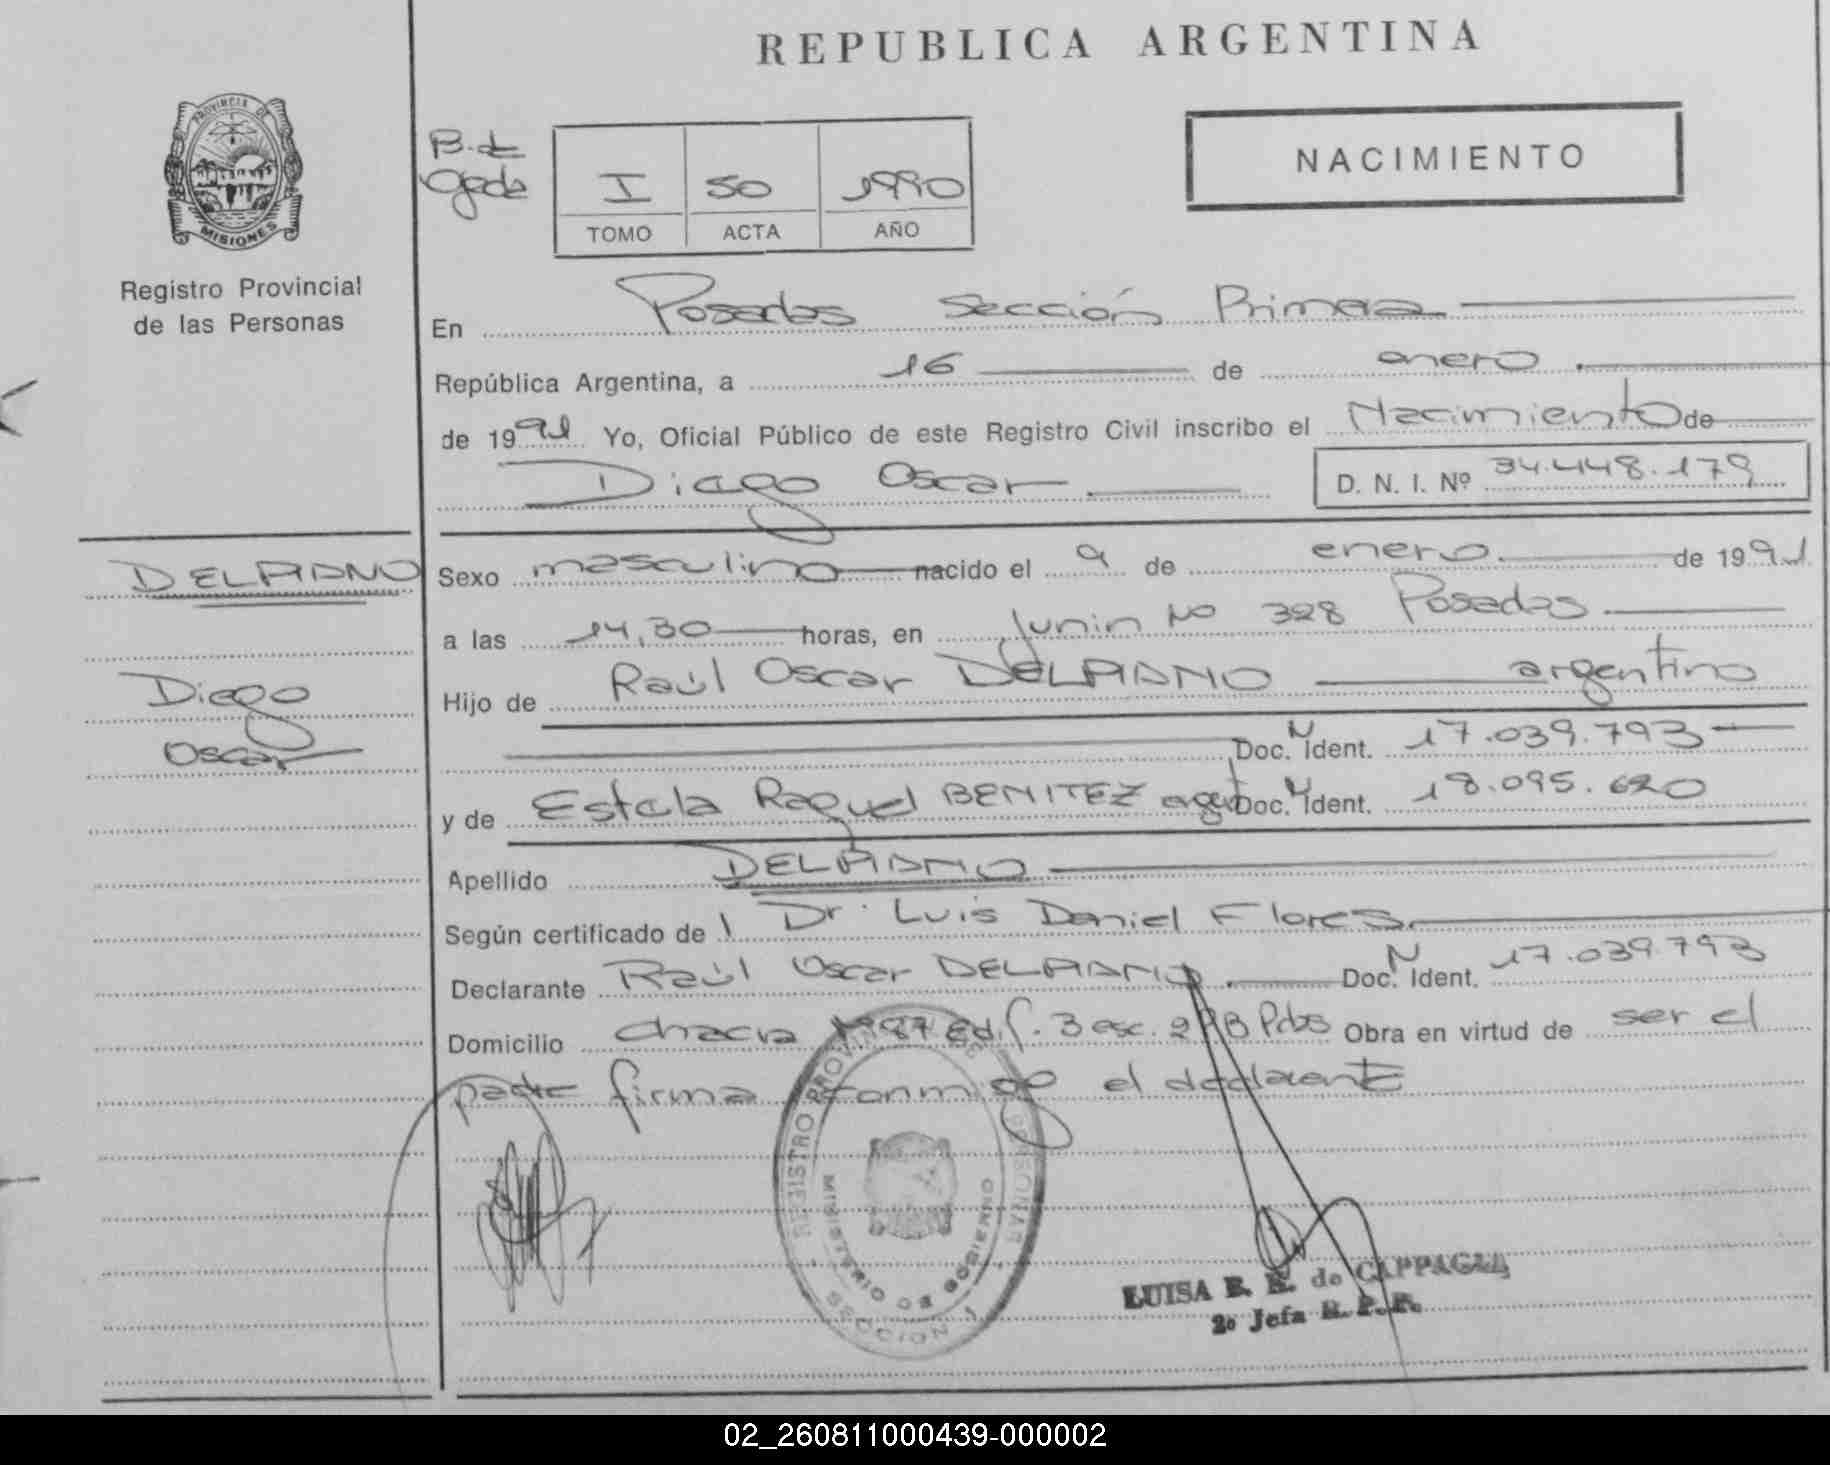 REPUBLICA ARGENTINA
PROVINCIA DE
MISIONES
Registro Provincial
de las Personas
B. de
I 50 1990
TOMO ACTA AÑO
NACIMIENTO
En Posadas Sección Primera
República Argentina, a 16 de enero
de 1991 Yo, Oficial Público de este Registro Civil inscribo el Nacimiento de
Diego Oscar
D. N. I. Nº 34.448.179
DELPIANO
Diego
Oscar
Sexo masculino nacido el 9 de enero de 1991
a las 14,30 horas, en Junin Nº 328 Posadas
Hijo de Raúl Oscar DELPIANO argentino
Doc. N Ident. 17.039.793
y de Estela Raquel BENITEZ argent Doc. N Ident. 18.095.620
Apellido DELPIANO
Según certificado de l Dr. Luis Daniel Flores
Declarante Raúl Oscar DELPIANO Doc. N Ident. 17.039.793
Domicilio chacra Nº 87 Edif. 3 esc. 2 Pdas Obra en virtud de ser el
padre firma conmigo el declarante
REGISTRO PROVINCIAL DE PERSONAS
MINISTERIO DE GOBIERNO
SECCION 1
LUISA de CAPPAGLI
2º Jefa R. P. P.
02_260811000439-000002